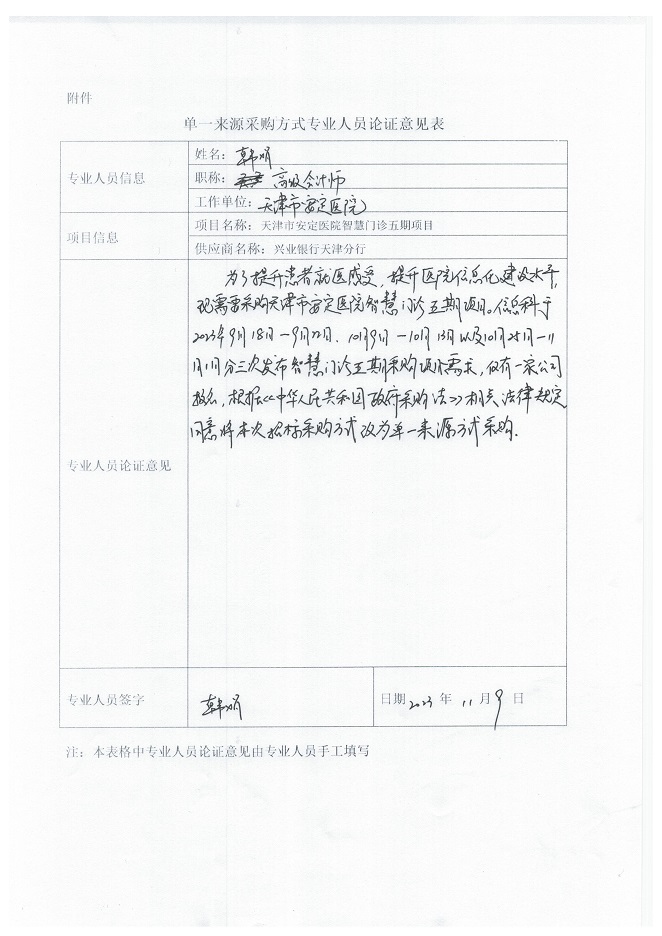 附件
单一来源采购方式专业人员论证意见表
专业人员信息
姓名：韩娟
职称：高级会计师
工作单位：天津市安定医院
项目信息
项目名称：天津市安定医院智慧门诊五期项目
供应商名称：兴业银行天津分行
专业人员论证意见
为了提升患者就医感受，提升医院信息化建设水平，
现需要采购天津市安定医院智慧门诊五期项目。信息科于
2023年9月18日-9月22日、10月9日-10月13日以及10月25日-11
月1日分三次发布智慧门诊五期采购项目需求，仅有一家公司
报名，根据《中华人民共和国政府采购法》相关法律规定
同意将本次招标采购方式改为单一来源方式采购.
专业人员签字
韩娟
日期 2023 年 11 月 9 日
注：本表格中专业人员论证意见由专业人员手工填写